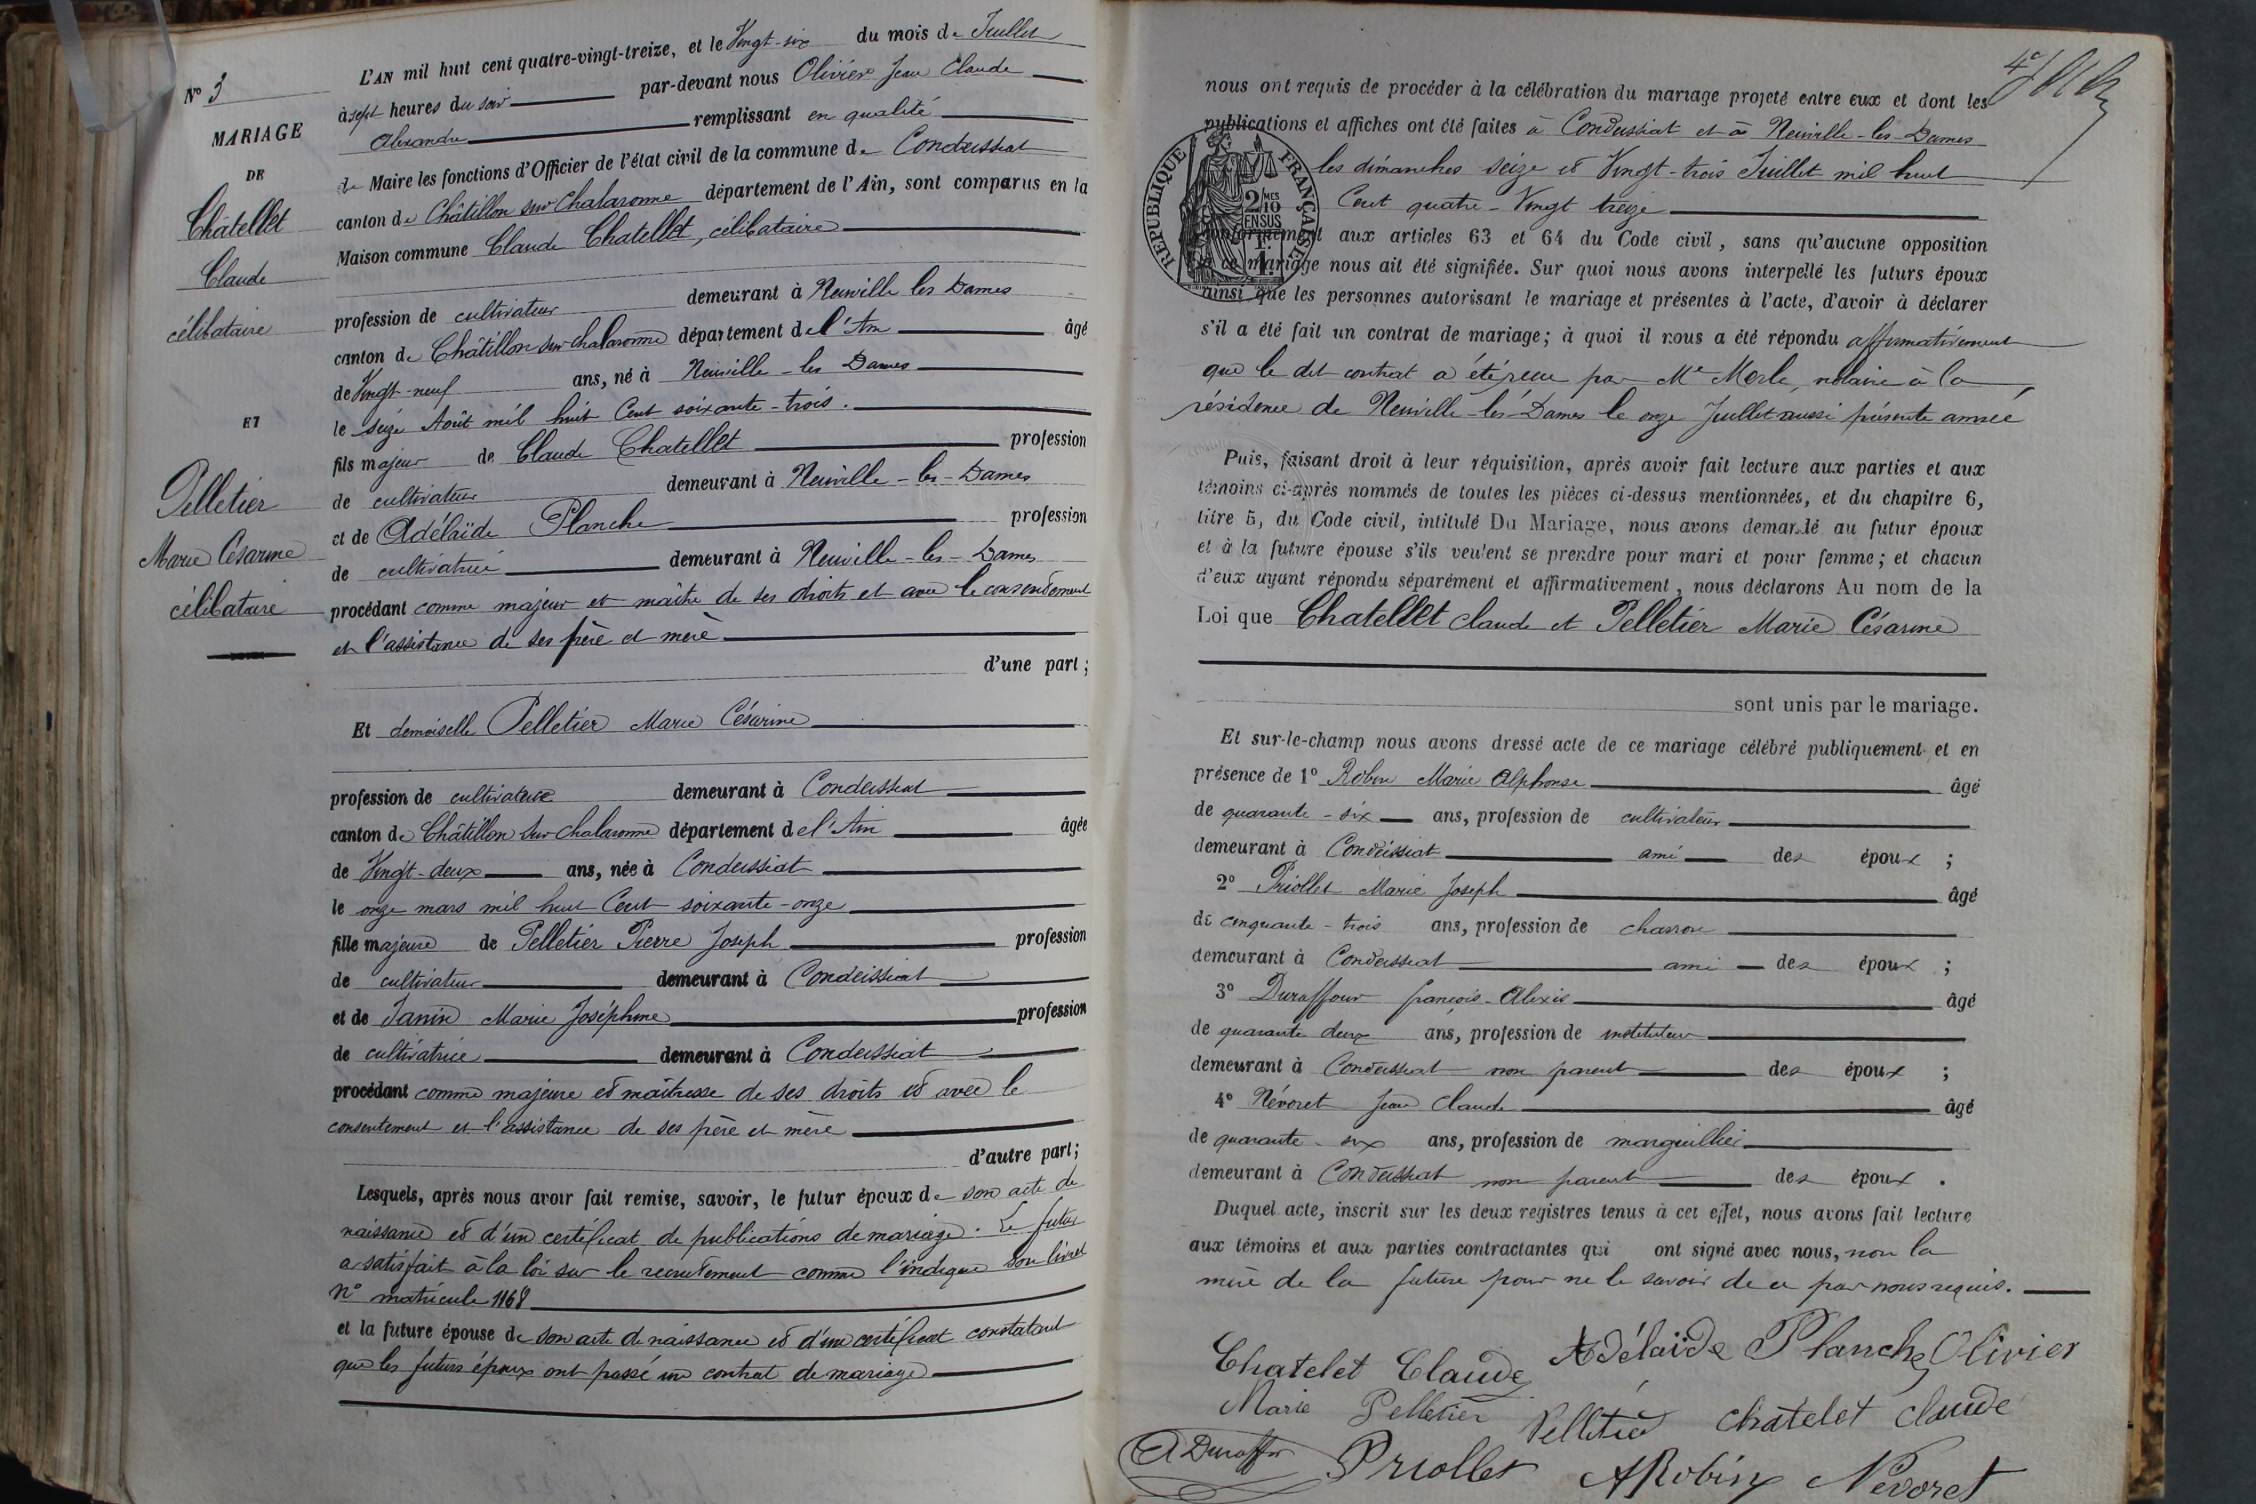 N° 3
MARIAGE
DE
Châtellet
Claude
célibataire
ET
Pelletier
Marie Césarine
célibataire
L'AN mil huit cent quatre-vingt-treize, et le Vingt-six du mois de Juillet
à sept heures du soir par-devant nous Olivier Jean Claude
Alexandre remplissant en qualité
de Maire les fonctions d'Officier de l'état civil de la commune de Condeissiat
canton de Châtillon sur Chalaronne département de l'Ain, sont comparus en la
Maison commune Claude Chatellet, célibataire
profession de cultivateur demeurant à Neuville les Dames
canton de Châtillon sur chalaronne département de l'Ain âgé
de Vingt-neuf ans, né à Neuville-les Dames
le seize Août mil huit Cent soixante-trois.
fils majeur de Claude Chatellet profession
de cultivateur demeurant à Neuville-les-Dames
et de Adélaïde Planche profession
de cultivatrice demeurant à Neuville-les-Dames
procédant comme majeur et maître de ses droits et avec le consentement
et l'assistance de ses père et mère
d'une part ;
Et demoiselle Pelletier Marie Césarine
profession de cultivatrice demeurant à Condeissiat
canton de Châtillon sur chalaronne département de l'Ain âgée
de Vingt-deux ans, née à Condeissiat
le onze mars mil huit Cent soixante-onze
fille majeure de Pelletier Pierre Joseph profession
de cultivateur demeurant à Condeissiat
et de Janin Marie Joséphine profession
de cultivatrice demeurant à Condeissiat
procédant comme majeure et maîtresse de ses droits et avec le
consentement et l'assistance de ses père et mère
d'autre part ;
Lesquels, après nous avoir fait remise, savoir, le futur époux de son acte de
naissance et d'un certificat de publications de mariage. Le futur
a satisfait à la loi sur le recrutement comme l'indique son livret
N° matricule 1168
et la future épouse de son acte de naissance et d'un certificat constatant
que les futurs époux ont passé un contrat de mariage
nous ont requis de procéder à la célébration du mariage projeté entre eux et dont les
publications et affiches ont été faites à Condeissiat et à Neuville-les-Dames
les dimanches seize et Vingt-trois Juillet mil huit
Cent quatre-Vingt treize
REPUBLIQUE FRANÇAISE
2/10 MES
EN SUS
conformément aux articles 63 et 64 du Code civil, sans qu'aucune opposition
à ce mariage nous ait été signifiée. Sur quoi nous avons interpellé les futurs époux
ainsi que les personnes autorisant le mariage et présentes à l'acte, d'avoir à déclarer
s'il a été fait un contrat de mariage ; à quoi il nous a été répondu affirmativement
que le dit contrat a été reçu par Me Merle, notaire à la
résidence de Neuville-les-Dames le onze Juillet aussi présente année
Puis, faisant droit à leur réquisition, après avoir fait lecture aux parties et aux
témoins ci-après nommés de toutes les pièces ci-dessus mentionnées, et du chapitre 6,
titre 5, du Code civil, intitulé Du Mariage, nous avons demandé au futur époux
et à la future épouse s'ils veulent se prendre pour mari et pour femme ; et chacun
d'eux ayant répondu séparément et affirmativement, nous déclarons Au nom de la
Loi que Chatellet Claude et Pelletier Marie Césarine
sont unis par le mariage.
Et sur-le-champ nous avons dressé acte de ce mariage célébré publiquement et en
présence de 1° Robin Marie Alphonse âgé
de quarante-six ans, profession de cultivateur
demeurant à Condeissiat ami des époux ;
2° Priollet Marie Joseph âgé
de cinquante-trois ans, profession de charron
demeurant à Condeissiat ami des époux ;
3° Duraffour françois-Alexis âgé
de quarante deux ans, profession de instituteur
demeurant à Condeissiat non parent des époux ;
4° Névoret Jean Claude âgé
de quarante-six ans, profession de marguillier
demeurant à Condeissiat non parent des époux.
Duquel acte, inscrit sur les deux registres tenus à cet effet, nous avons fait lecture
aux témoins et aux parties contractantes qui ont signé avec nous, non la
mère de la future pour ne le savoir de ce par nous requis.
Chatelet Claude Adélaïde Planche Olivier
Marie Pelletier Pelletier chatelet claude
A Duraffour Priollet A Robin Nevoret